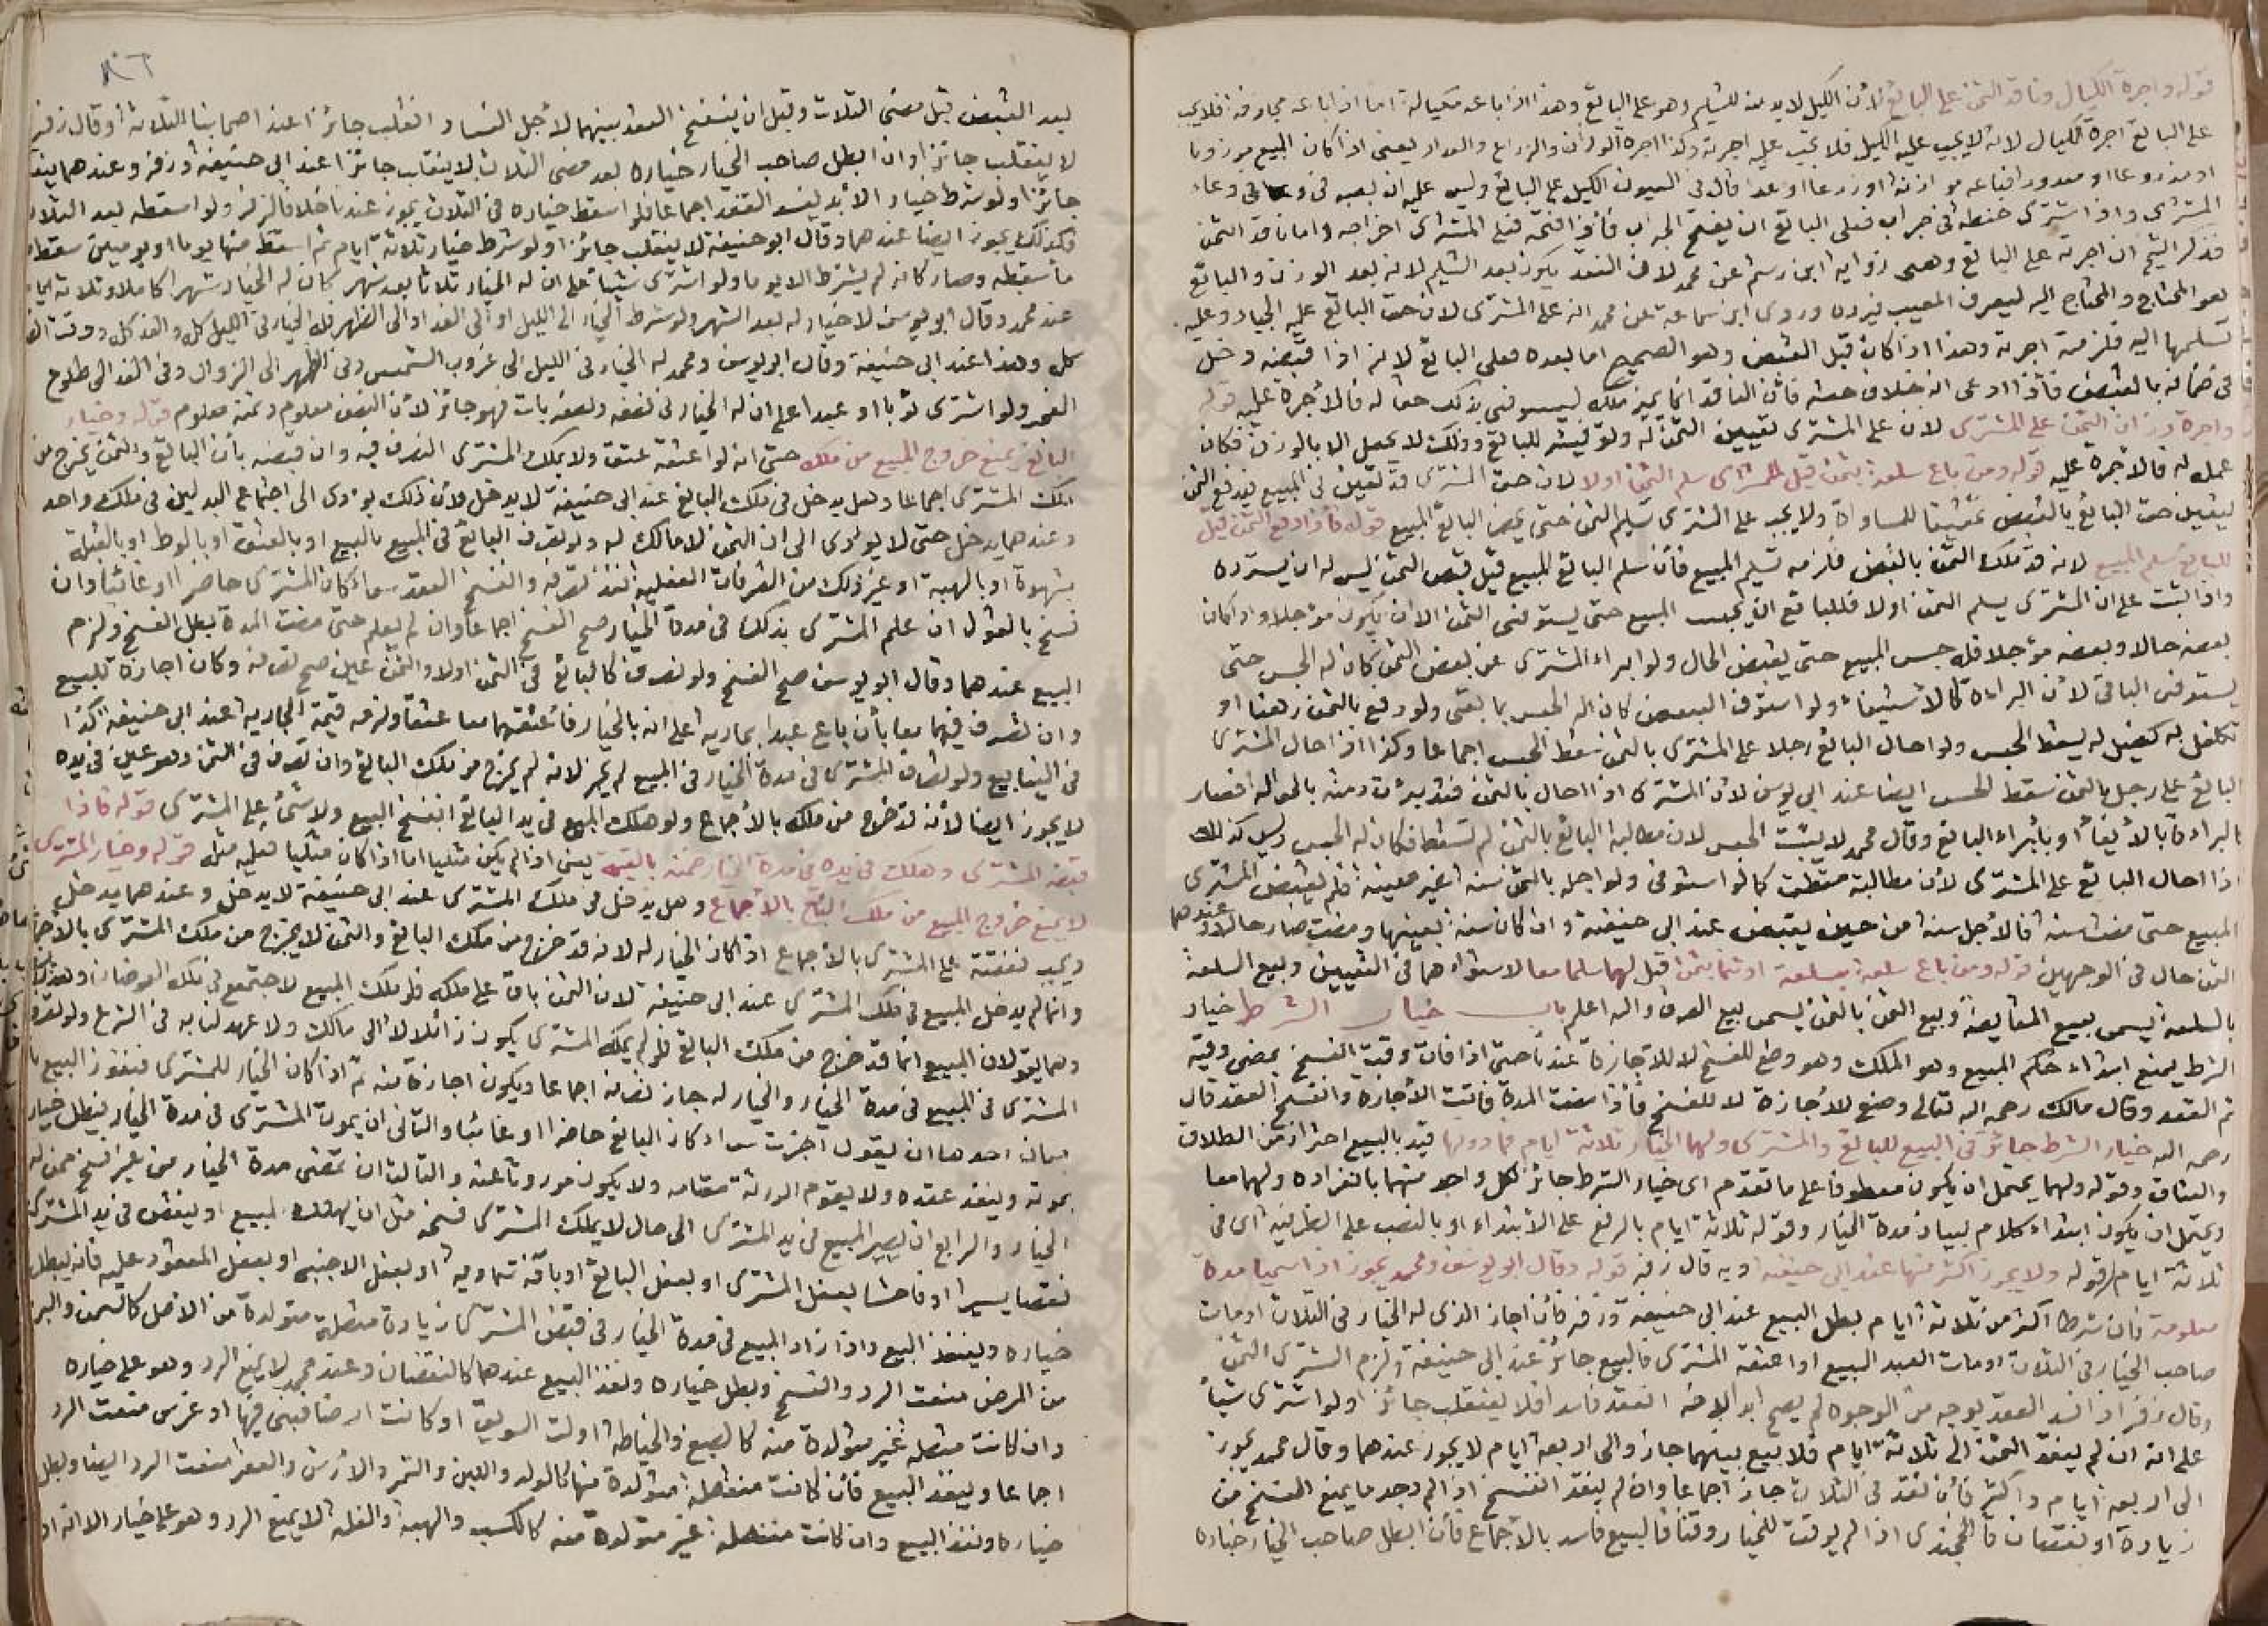 قوله واجرة الكيال وناقد الثمن على البائع لأن الكيل لابد منه للتسليم وهو على البائع وهذا اذا باعه مكيالة اما اذا باعه مجازفة فلا يجب
على البائع اجرة الكيال لانه لا يجب عليه الكيل فلا يجب عليه اجرته وكذا اجرة الوزان والذراع والعداد يعنى اذا كان المبيع موزونا
او مذروعا او معدودا فباعه موازنة او زرعا او عدا قال فى العيون الكيل على البائع وليس عليه ان يصبه فى وعاء
المشترى واذا اشترى حنطة فى جراب فعلى البائع ان يفتح الجراب فأذا فتحه فعلى المشترى اخراجه واما ناقد الثمن
فذكر الشيخ ان اجرته على البائع وهى رواية ابن رستم عن محمد لان النقد يكون بعد التسليم لانه بعد الوزن والبائع
هو المحتاج اليه ليعرف المعيب ليرده وروى ابن سماعة عن محمد انه على المشترى لان حق البائع عليه الجياد وعليه
تسلمها اليه فلزمته اجرته وهذا اذا كان قبل القبض وهو الصحيح اما بعده فعلى البائع لانه اذا قبضه دخل
فى ضمانه بالقبض فأذا ادعى انه خلاف حقه فأن الناقد انما يميز ملكه ليستوفى بذلك حقا له فالأجرة عليه قوله
واجرة وزان الثمن على المشترى لان على المشترى تعيين الثمن له وتوفيته للبائع وذلك لا يحصل الا بالوزن فكان
عمله له فالأجرة عليه قوله ومن باع سلعة بثمن قيل للمشترى سلم الثمن اولا لان حق المشترى قد تعين فى المبيع فيدفع الثمن
ليتعين حق البائع بالقبض تحقيقا للمساواة ولا يجب على المشترى تسليم الثمن حتى يحضر البائع المبيع قوله فأذا دفع الثمن قيل
للبائع سلم المبيع لانه قد ملك الثمن بالقبض فلزمه تسليم المبيع فأن سلم البائع المبيع قبل قبض الثمن ليس له ان يسترده
واذا ثبت على ان المشترى يسلم الثمن اولا فللبائع ان يحبس المبيع حتى يستوفى الثمن الا ان يكون مؤجلا واذا كان
بعضه حالا وبعضه مؤجلا فله حبس المبيع حتى يقبض الحال ولو ابراء المشترى عن بعض الثمن كان له الحبس حتى
يستوفى الباقى لأن البراءة كالاستيفاء ولو استوفى البعض كان له الحبس بما بقى ولو دفع بالثمن رهنا او
تكفل به كفيل لم يسقط الحبس ولو احال البائع رجلا على المشترى بالثمن سقط الحبس اجماعا وكذا اذا احال المشترى
البائع على رجل بالثمن سقط الحبس ايضا عند ابى يوسف لان المشترى اذا احال بالثمن فقد برئت ذمته بالحوالة فصار
كالبراءة بالأيفأ او بأبراء البائع وقال محمد لا يثبت الحبس لان مطالبة البائع بالثمن لم تسقط فكان له الحبس وليس كذلك
اذا احال البائع على المشترى لأن مطالبته سقطت كما لو استوفى ولو اجله بالثمن سنة غير معينة فلم يقبض المشترى
المبيع حتى مضت سنة فالأجل سنة من حين يقبض عند ابى حنيفة وان كان سنة بعينها ومضت صار حالا وعندهما
الثمن حال فى الوجهين قوله ومن باع سلعة بسلعة او ثمنا بثمن قيل لهما سلما معا لاستواءهما فى التعيين وبيع السلعة
بالسلعة يسمى بيع المقايضة وبيع الثمن بالثمن يسمى بيع الصرف والله اعلم باب خيار الشرط خيار
الشرط يمنع ابتداء حكم المبيع وهو الملك وهو وضع للفسخ لا للاجازة عندنا حتى اذا فات وقت الفسخ بمضى وقته
تم العقد وقال مالك رحمه الله تعالى وضع للأجازة لا للفسخ فأذا مضت المدة فاتت الأجازة وانفسخ العقد قال
رحمه الله خيار الشرط جائز فى البيع للبائع والمشترى ولهما الخيار ثلاثة ايام فما دونها قيد بالبيع احترازا عن الطلاق
والعتاق وقوله ولهما يحتمل ان يكون معطوفا على ما تقدم اى خيار الشرط جائز لكل واحد منهما بانفراده ولهما معا
ويحتمل ان يكون ابتداء كلام لبيان مدة الخيار وقوله ثلاثة ايام بالرفع على الأبتداء او بالنصب على الظرفية اى فى
ثلاثة ايام قوله ولا يجوز اكثر منها عند ابى حنيفة وبه قال زفر قوله وقال ابو يوسف ومحمد يجوز اذا سميا مدة
معلومة فان شرطا اكثر من ثلاثة ايام بطل البيع عند ابى حنيفة وزفر فأن اجاز الذى له الخيار فى الثلاث او مات
صاحب الخيار فى الثلاث او مات العبد المبيع او اعتقه المشترى فالبيع جائز عند ابى حنيفة ولزم المشترى الثمن
وقال زفر اذا فسد العقد بوجه من الوجوه لم يصح ابدا لانه انعقد فاسدا فلا ينقلب جائزا ولو اشترى شيأ
على انه ان لم ينقد الثمن الى ثلاثة ايام فلا بيع بينهما جاز والى اربعة ايام لا يجوز عندهما وقال محمد يجوز
الى اربعة ايام واكثر فأن نقد فى الثلاث جاز اجماعا وان لم ينقد انفسخ اذا لم يوجد ما يمنع الفسخ من
زيادة او نقصان فالخجندى اذا لم يوقت للخيار وقتا فالبيع فاسد بالأجماع فأن ابطل صاحب الخيار خياره
٨٦
بعد القبض قبل مضى الثلاث وقبل ان ينفسخ العقد بينهما لأجل الفساد انقلب جائزا عند اصحابنا الثلاثة وقال زفر
لا ينقلب جائزا وان ابطل صاحب الخيار خياره بعد مضى الثلاث لا ينقلب جائزا عند ابى حنيفة وزفر وعندهما ينقلب
جائزا ولو شرط خيار الأبد يفسد العقد اجماعا فلو اسقط خياره فى الثلاث يجوز عندنا خلافا لزفر ولو اسقطه بعد الثلاث
فكذلك يجوز ايضا عندهما وقال ابو حنيفة لا ينقلب جائزا ولو شرط خيار ثلاثة ايام ثم اسقط منها يوما او يومين سقط
ما اسقطه وصار كأنه لم يشترط الا يوما ولو اشترى شيئا على ان له الخيار ثلاثا بعد شهر كان له الخيار شهرا كاملا وثلاثة ايام
عند محمد وقال ابو يوسف لا خيار له بعد الشهر ولو شرط الخيار الى الليل او الى الغد او الى الظهر فله الخيار فى الليل كله والغد كله ووقت الظهر
كله وهذا عند ابى حنيفة وقال ابو يوسف ومحمد له الخيار فى الليل الى غروب الشمس وفى الظهر الى الزوال وفى الغد الى طلوع
الفجر ولو اشترى ثوبا او عبدا على ان له الخيار فى نصفه ونصفه بات فهو جائز لأن النصف معلوم وثمنه معلوم قوله وخيار
البائع يمنع خروج المبيع من ملكه حتى انه لو اعتقه عتق ولا يملك المشترى التصرف فيه وان قبضه بأذن البائع والثمن يخرج من
ملك المشترى اجماعا وهل يدخل فى ملك البائع عند ابى حنيفة لا يدخل لأن ذلك يؤدى الى اجتماع البدلين فى ملك واحد
وعندهما يدخل حتى لا يؤدى الى ان الثمن لا مالك له ولو تصرف البائع فى المبيع بالبيع او بالعتق او بالوطئ او بالقبلة
بشهوة او بالهبة او غير ذلك من التصرفات الفعلية نفذ تصرفه وانفسخ العقد سواء كان المشترى حاضرا او غائبا وان
فسخ بالقول ان علم المشترى بذلك فى مدة الخيار صح الفسخ اجماعا وان لم يعلم حتى مضت المدة بطل الفسخ ولزم
البيع عندهما وقال ابو يوسف صح الفسخ ولو تصرف كالبائع فى الثمن اولا والثمن عين صح تصرفه وكان اجازة للبيع
وان تصرف فيهما معا بأن باع عبدا بجارية على انه بالخيار فأعتقهما معا عتقا ولزمه قيمة الجارية عند ابى حنيفة كذا
فى الينابيع ولو تصرف المشترى فى مدة الخيار فى المبيع لم يجز لانه لم يخرج من ملك البائع وان تصرف فى الثمن وهو عين فى يده
لا يجوز ايضا لأنه قد خرج من ملكه بالأجماع ولو هلك المبيع فى يد البائع انفسخ البيع ولا شئ على المشترى قوله فاذا
قبضه المشترى وهلك فى يده فى مدة الخيار ضمنه بالقيمة يعنى اذا لم يكن مثليا اما اذا كان مثليا فعليه مثله قوله وخيار المشترى
لا يمنع خروج المبيع من ملك البائع بالأجماع وهل يدخل فى ملك المشترى عند ابى حنيفة لا يدخل وعندهما يدخل
ويجب نفقته على المشترى بالأجماع اذا كان الخيار له لانه قد خرج من ملك البائع والثمن لا يخرج من ملك المشترى بالأجماع
وانما لم يدخل المبيع فى ملك المشترى عند ابى حنيفة لان الثمن باق على ملكه فلو ملك المبيع لاجتمع فى ملكه العوضان
وهما يقولان المبيع انما قد خرج من ملك البائع فلو لم يملكه المشترى يكون زائلا لا الى مالك ولا عهد لنا به فى الشرع ولو تصرف
المشترى فى المبيع فى مدة الخيار والخيار له جاز تصرفه اجماعا ويكون اجازة منه ثم اذا كان الخيار للمشترى فنفوذ البيع
بمعان احدها ان يقول اجزت سواء كان البائع حاضرا او غائبا والثانى ان يموت المشترى فى مدة الخيار فيبطل خياره
بموته وينفذ عقده ولا يقوم الورثة مقامه ولا يكون موروثا عنه والثالث ان تمضى مدة الخيار من غير فسخ ممن له
الخيار والرابع ان يصير المبيع فى يد المشترى الى حال لا يملك المشترى فسخه مثل ان يهلك المبيع او ينقص فى يد المشترى
نقصا يسيرا او فاحشا بفعل المشترى او بفعل البائع او بآفة سماوية او بفعل الاجنبى او بفعل المعقود عليه فأنه يبطل
خياره وينفذ البيع واذا زاد المبيع فى مدة الخيار فى قبض المشترى زيادة متصلة متولدة من الاصل كالسمن والبرء
من المرض منعت الرد والفسخ وبطل خياره ونفذ البيع عندهما كالنقصان وعند محمد لا يمنع الرد وهو على خياره
وان كانت متصلة غير متولدة منه كالصبغ والخياطة او لت السويق او كانت ارضا فبنى فيها او غرس منعت الرد
اجماعا وينفذ البيع فأن كانت منفصلة متولدة منها كالولد واللبن والثمر والأرش والعقر منعت الرد ايضا وبطل
خياره ونفذ البيع وان كانت منفصلة غير متولدة منه كالكسب والهبة والغلة لا يمنع الرد وهو على خيار الا انه اذا